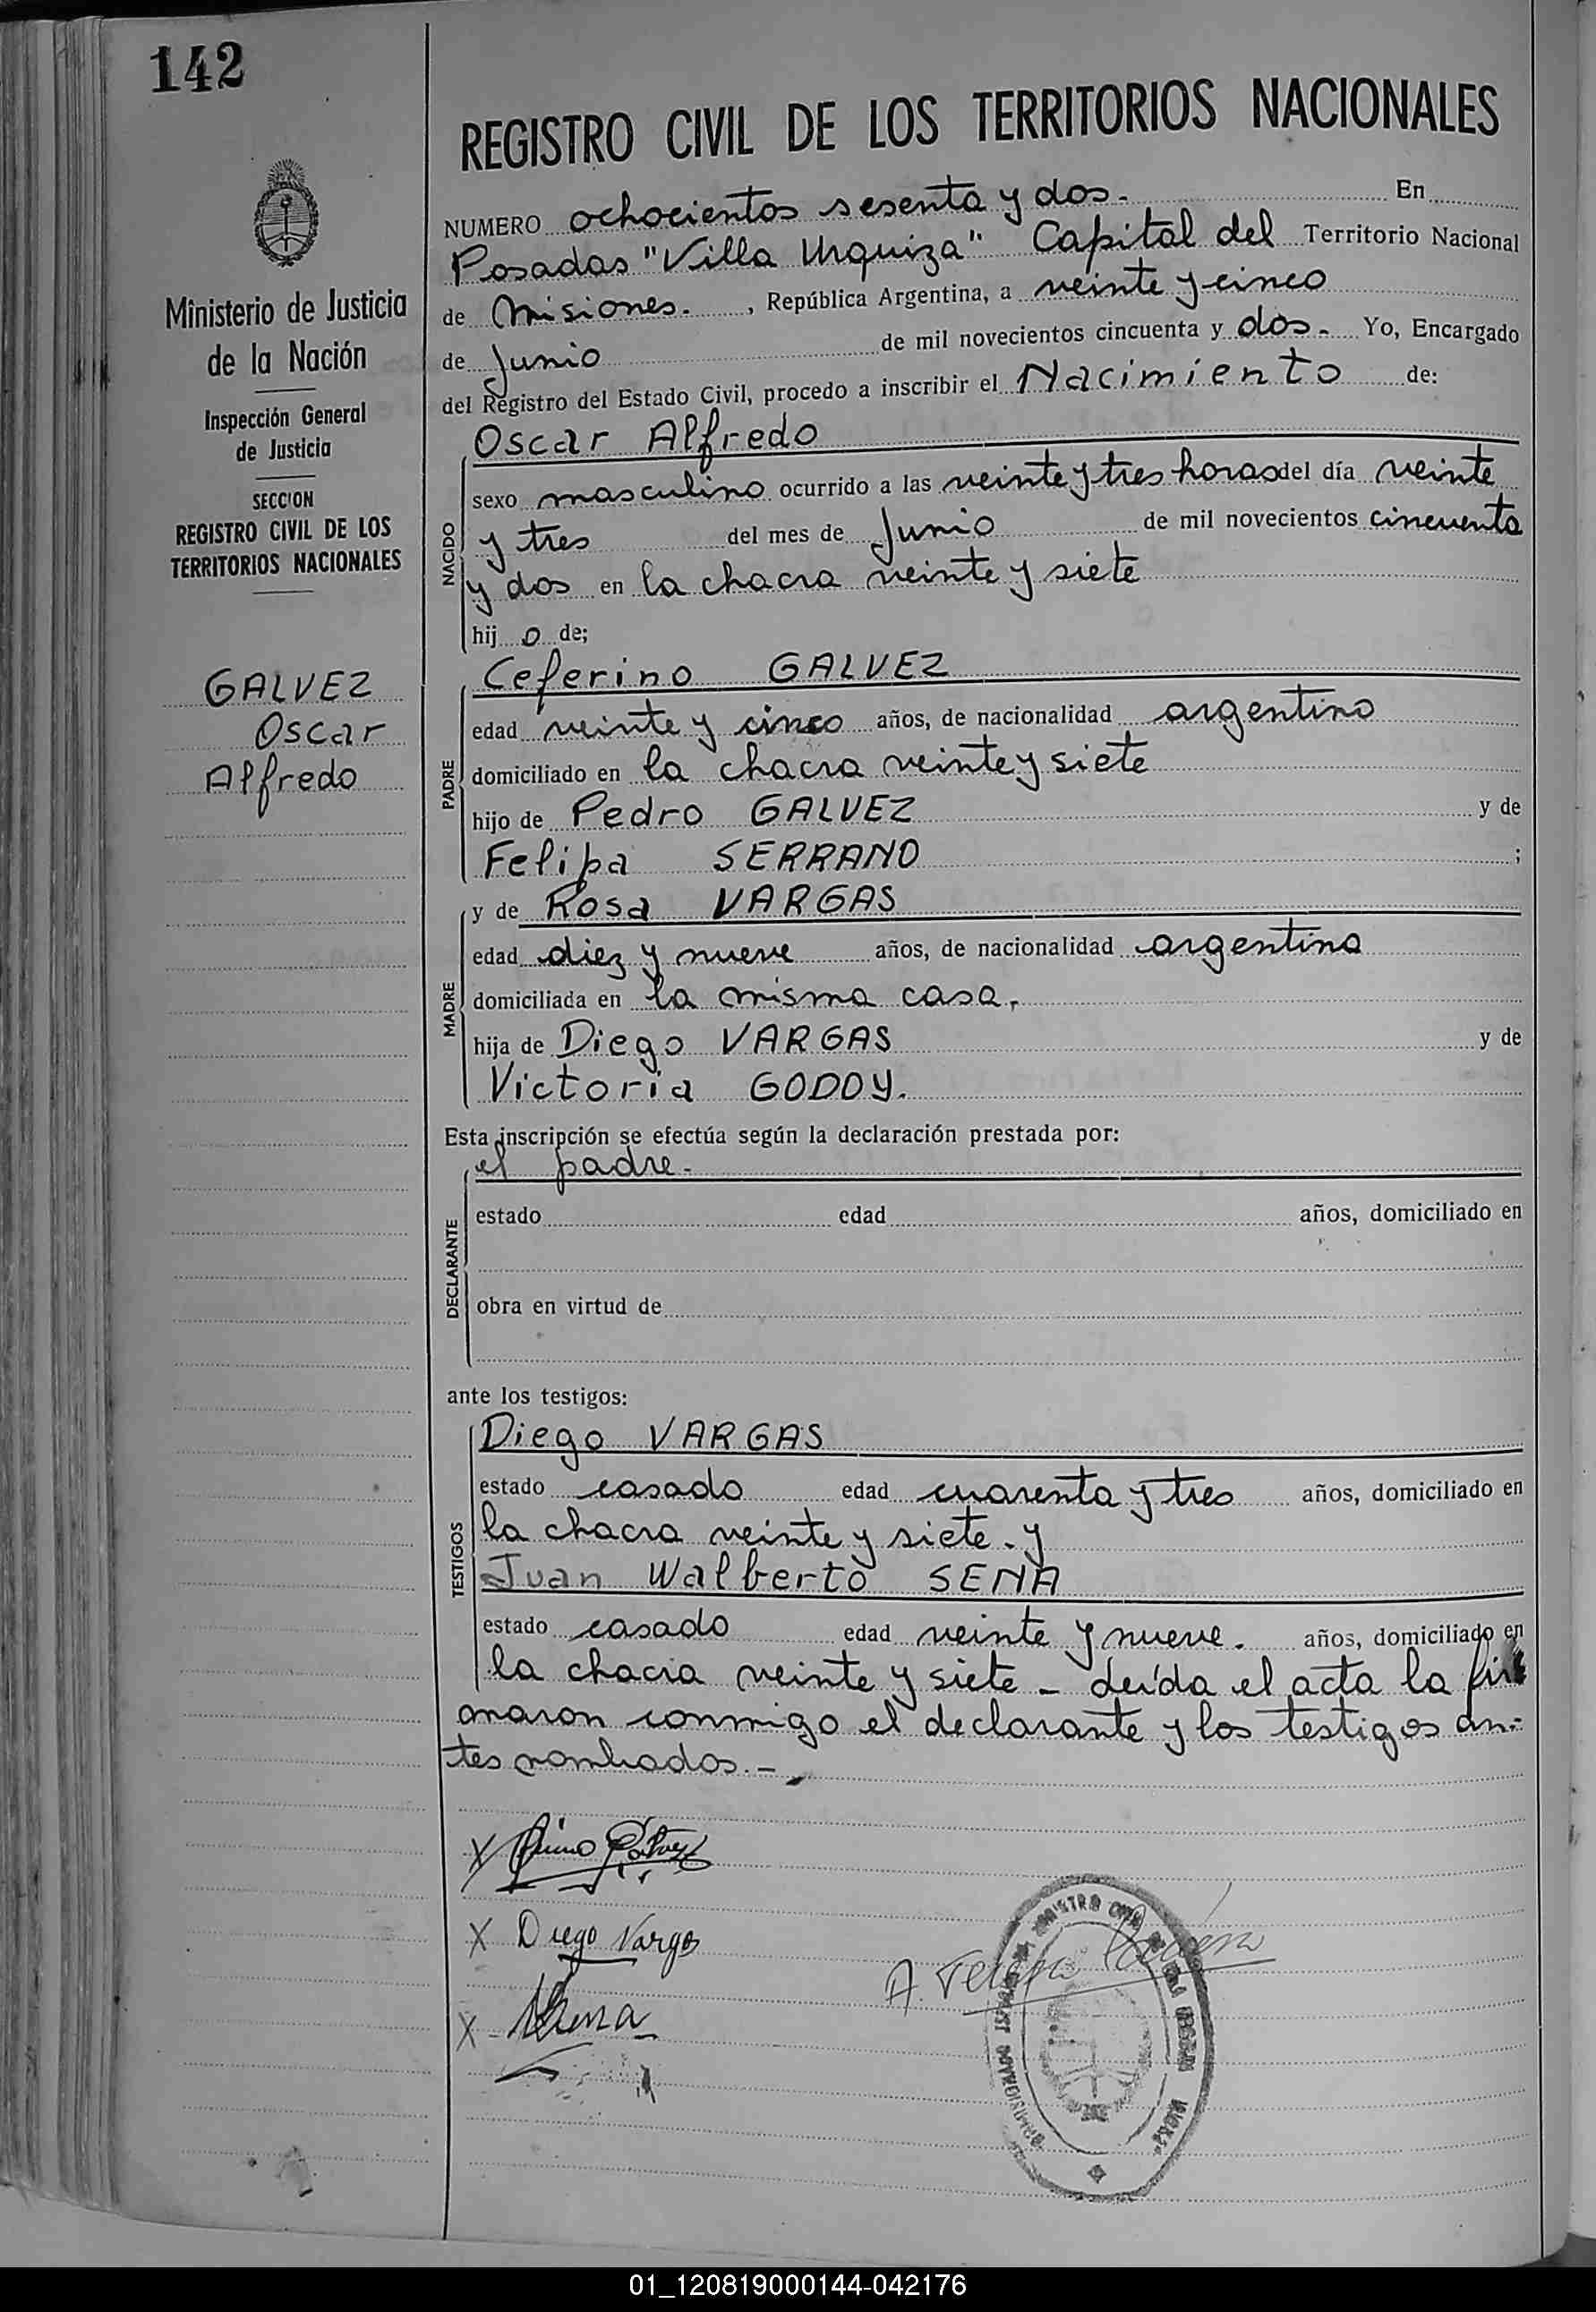 142
REGISTRO CIVIL DE LOS TERRITORIOS NACIONALES
Ministerio de Justicia
de la Nación
Inspección General
de Justicia
SECCION
REGISTRO CIVIL DE LOS
TERRITORIOS NACIONALES
GALVEZ
Oscar
Alfredo
NUMERO ochocientos sesenta y dos.- En
Posadas "Villa Urquiza" Capital del Territorio Nacional
de Misiones. , República Argentina, a veinte y cinco
de Junio de mil novecientos cincuenta y dos.- Yo, Encargado
del Registro del Estado Civil, procedo a inscribir el Nacimiento de:
NACIDO
Oscar Alfredo
sexo masculino ocurrido a las veinte y tres horas del día veinte
y tres del mes de Junio de mil novecientos cincuenta
y dos en la chacra veinte y siete
hij o de;
PADRE
Ceferino GALVEZ
edad veinte y cinco años, de nacionalidad argentino
domiciliado en la chacra veinte y siete
hijo de Pedro GALVEZ y de
Felipa SERRANO ;
MADRE
y de Rosa VARGAS
edad diez y nueve años, de nacionalidad argentina
domiciliada en la misma casa,
hija de Diego VARGAS y de
Victoria GODOY.
Esta inscripción se efectúa según la declaración prestada por:
DECLARANTE
el padre.-
estado edad años, domiciliado en
obra en virtud de
ante los testigos:
TESTIGOS
Diego VARGAS
estado casado edad cuarenta y tres años, domiciliado en
la chacra veinte y siete. y
Juan Walberto SENA
estado casado edad veinte y nueve. años, domiciliado en
la chacra veinte y siete - Leída el acta la fir
maron conmigo el declarante y los testigos an-
tes nombrados.-
X
X Diego Vargas
X Sena
A. Teresa
01_120819000144-042176